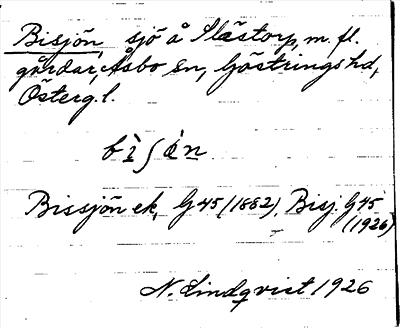 Bisjön, sjö å Slästorp, m. fl.
gårdar, Åsbo sn, Göstrings hd,
Österg. l.
bìʃǿn
Bissjön ek, G45 (1882), Bisj. G45
(1926)
N. Lindqvist 1926